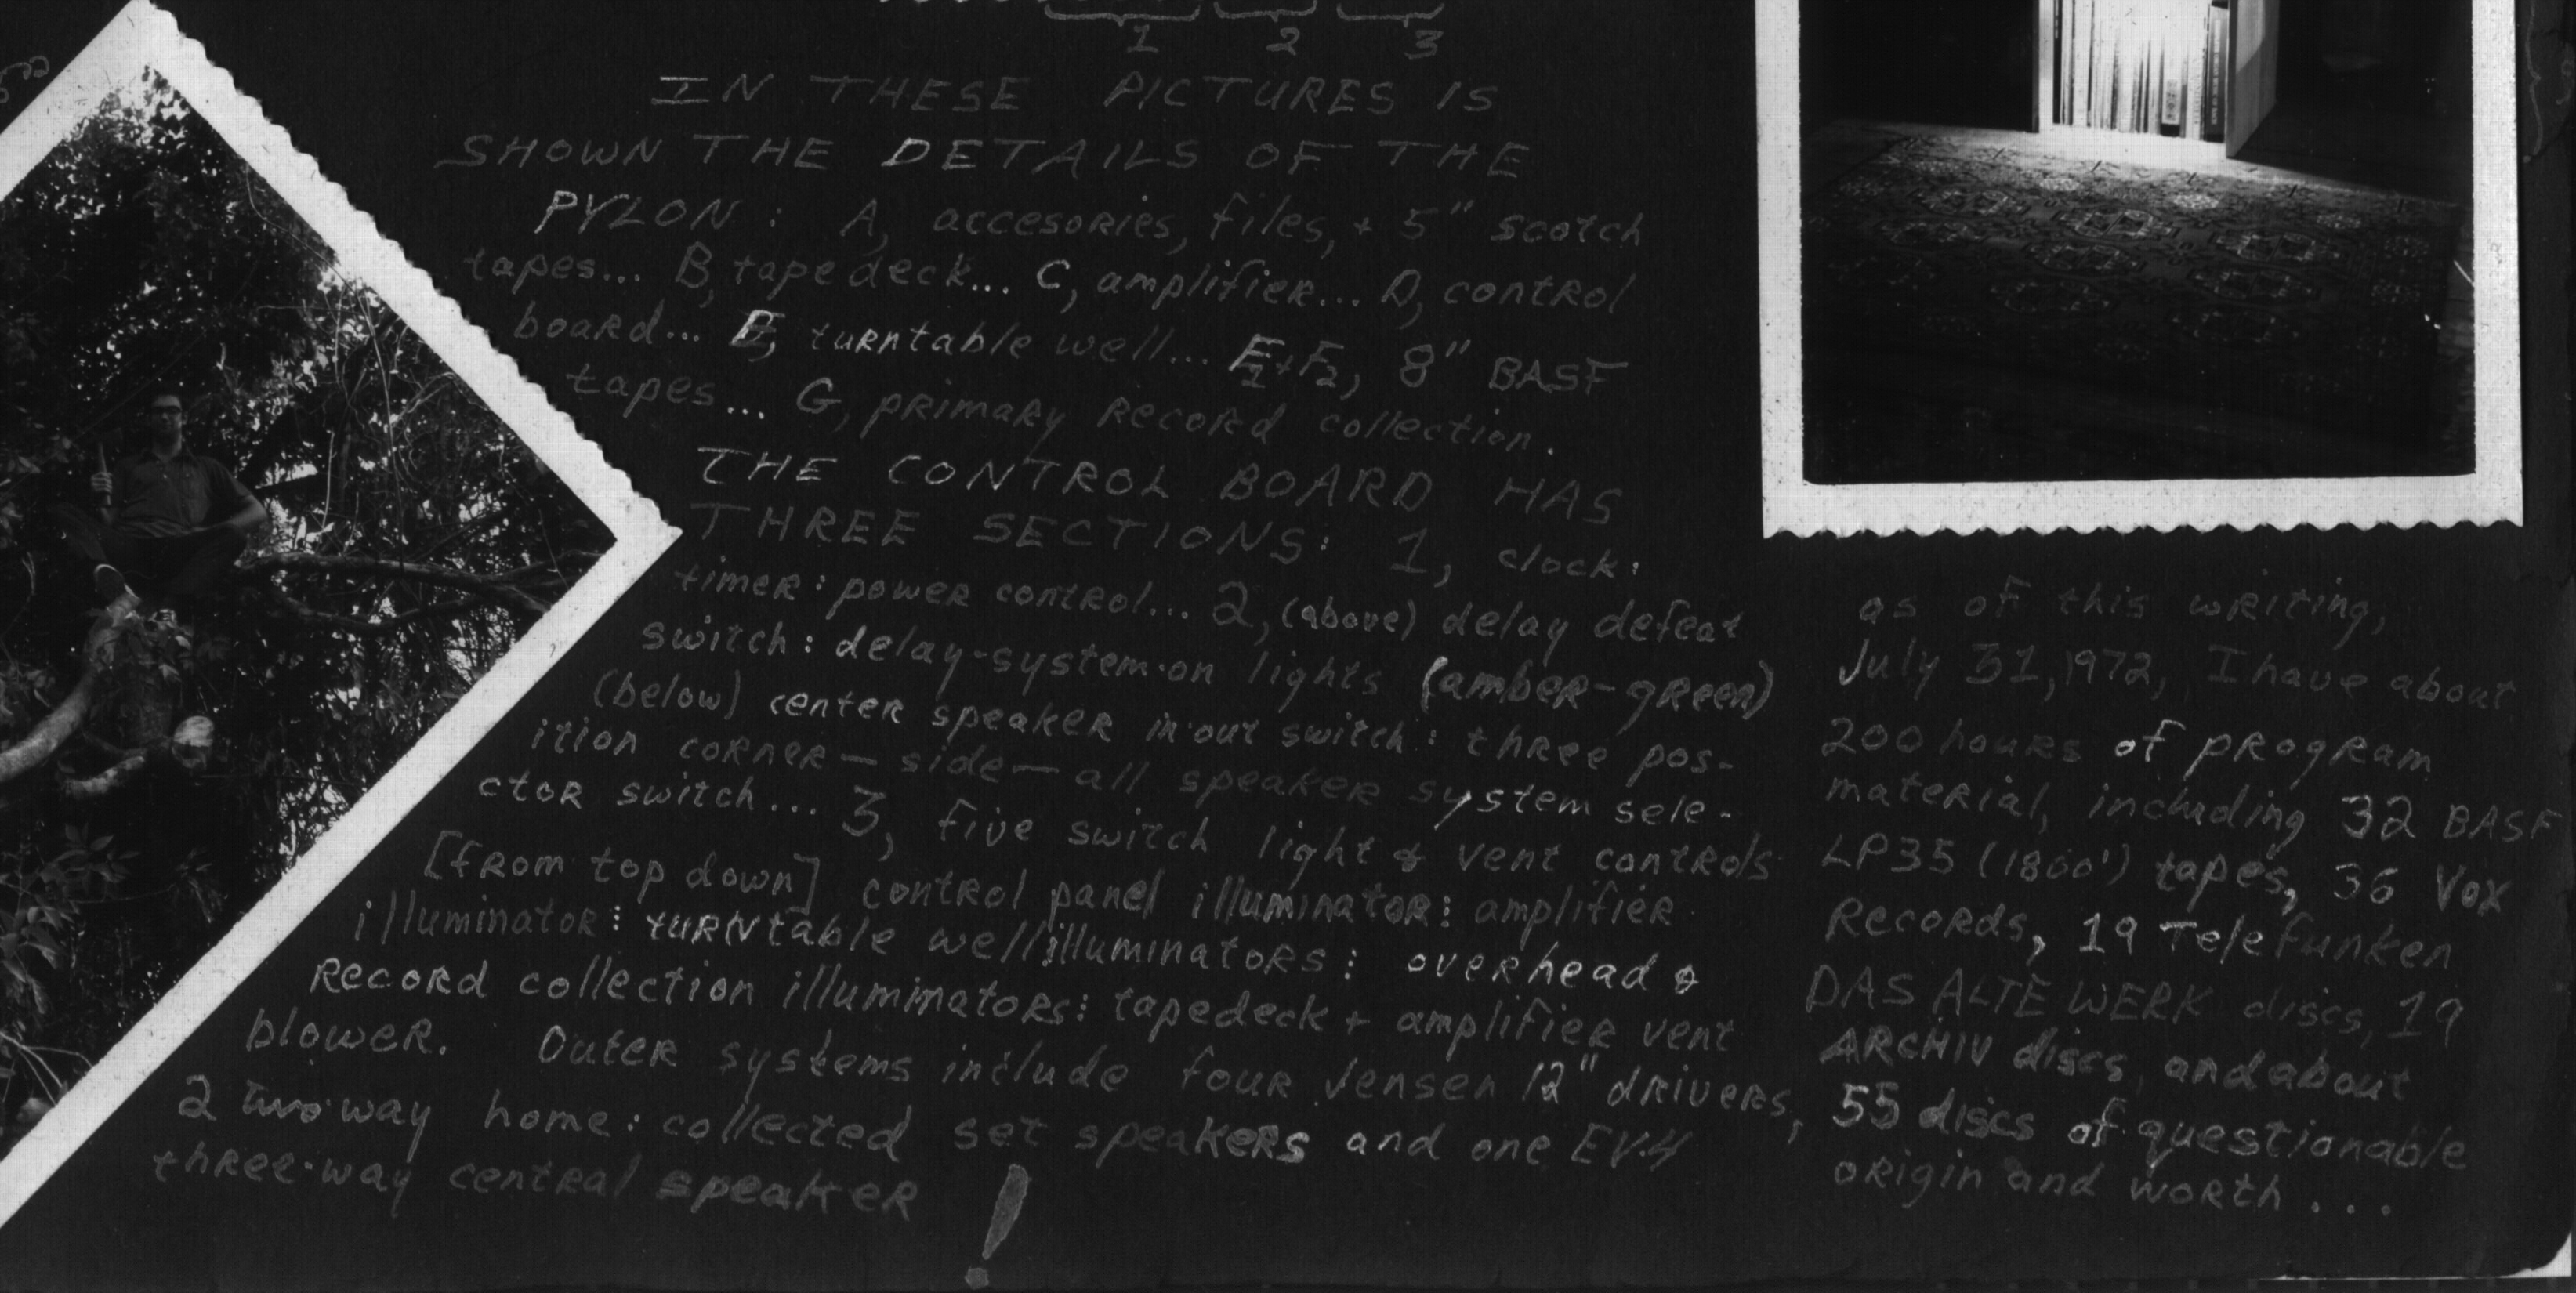 1 2 3
IN THESE PICTURES IS
SHOWN THE DETAILS OF THE
PYLON: A, accesories, files, + 5" scotch
tapes... B, tapedeck... C, amplifier... D, control
board... E, turntable well... F1+F2, 8" BASF
tapes... G, primary record collection.
THE CONTROL BOARD HAS
THREE SECTIONS: 1, clock:
timer: power control... 2, (above) delay defeat
switch: delay-system-on lights (amber-green)
(below) center speaker in-out switch: three pos-
ition corner — side — all speaker system sele-
ctor switch... 3, five switch light & vent controls
[from top down] control panel illuminator: amplifier
illuminator: turntable well illuminators: overhead &
record collection illuminators: tapedeck + amplifier vent
blower. Outer systems include four Jensen 12" drivers,
2 two-way home: collected set speakers and one EV-4
three-way central speaker!
as of this writing,
July 31, 1972, I have about
200 hours of program
material, including 32 BASF
LP35 (1800') tapes, 36 Vox
Records, 19 Telefunken
DAS ALTE WERK discs, 19
ARCHIV discs, and about
55 discs of questionable
origin and worth...